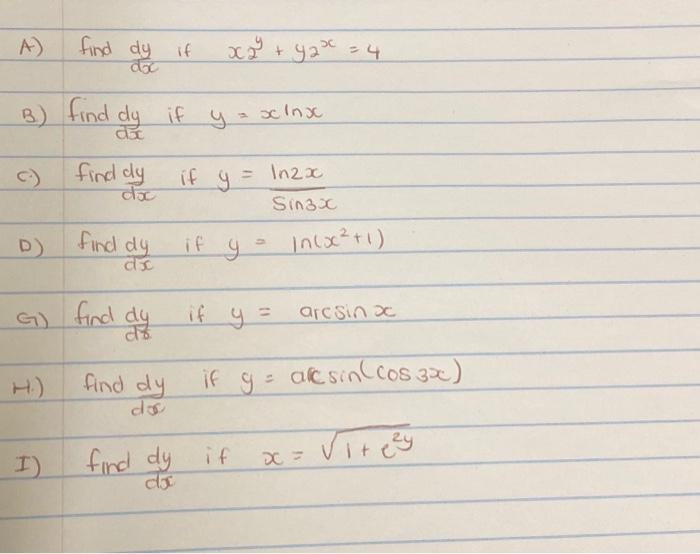 A) find dy/dx if x2^y + y2^x = 4
B.) find dy/dx if y = x lnx
C.) find dy/dx if y = ln2x/Sin3x
D) find dy/dx if y = ln(x²+1)
G) find dy/dx if y = arcsin x
H.) find dy/dx if y = arcsin(cos 3x)
I) find dy/dx if x = √(1 + e^2y)